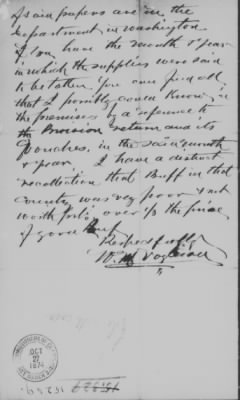 Said papers are in the
Department in Washington
If you have the month & year
in which the supplies were said
to be taken you can find all
that I possibly could know in
the premises by a reference to
the Provision return and its
Vouchers, in the said month
& year. I have a distinct
recollection that Beef in that
County was very poor & not
worth over ½ the price
of good beef
Respectfully
OCT
27
1874